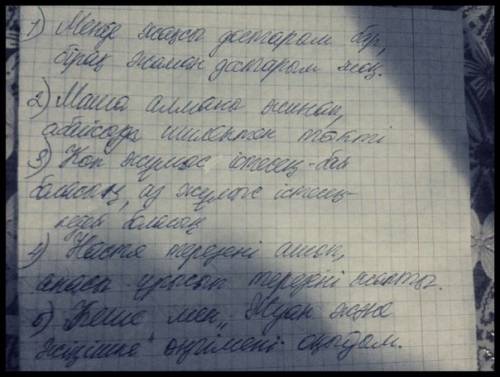 1) Менде жақсы достарым бар,
бірақ жаман достарым жоқ.
2) Маша алмана жинап,
абайсызда
3) Көп жұмыс істесең-бай
боласың, аз жұмыс істесең-
кедей боласың
4) Настя терезені ашып,
анасы ұрысып терезені жапты.
5) Кеше мен „Жуан және
жіңішке" әңгімені оқыдым.